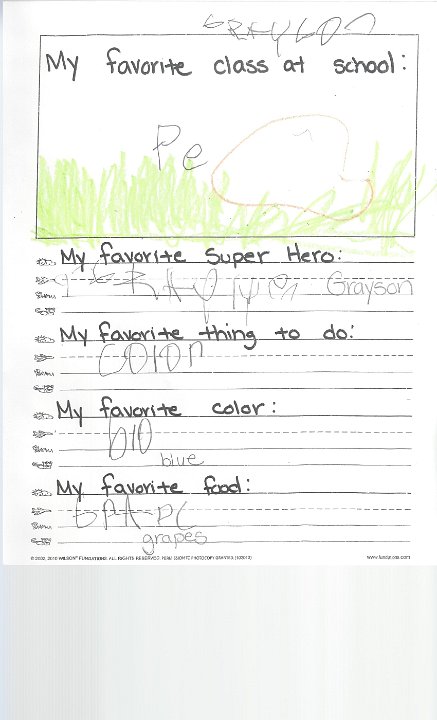 GRAYSON
My favorite class at school:
Pe
My favorite Super Hero:
Grayson
My favorite thing to do:
color
My favorite color:
blO
blue
My favorite food:
GRAPC
grapes
© 2002, 2010 WILSON FUNDATIONS. ALL RIGHTS RESERVED. PERMISSION TO PHOTOCOPY GRANTED.
www.fundations.com